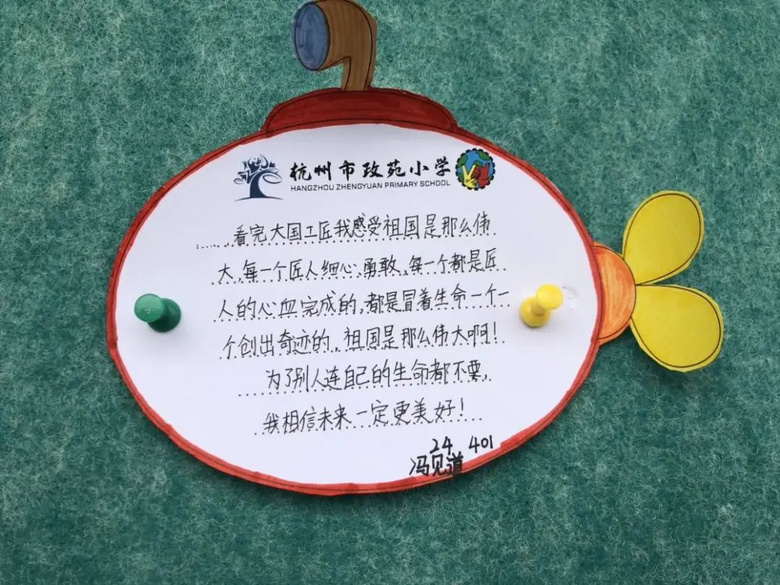 杭州市政苑小学
HANGZHOU ZHENGYUAN PRIMARY SCHOOL
看完大国工匠我感受祖国是那么伟
大,每一个匠人细心,勇敢,每一个都是匠
人的心血完成的,都是冒着生命一个一
个创出奇迹的,祖国是那么伟大啊!
为了别人连自己的生命都不要,
我相信未来一定更美好!
24 401
冯见道